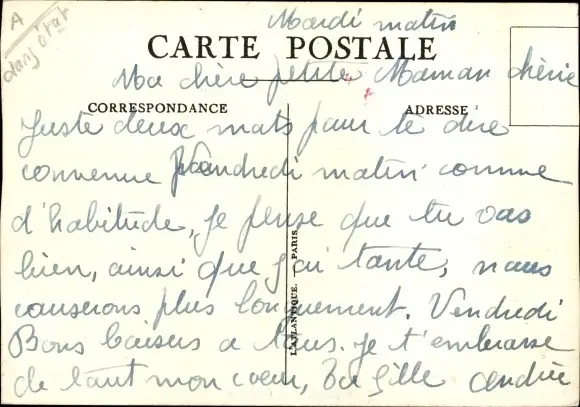 A
dans état
Mardi matin
CARTE POSTALE
Ma chère petite Maman chérie
CORRESPONDANCE
ADRESSE
Juste deux mots pour te dire
convenue Vendredi matin comme
d'habitude, je pense que tu vas
bien, ainsi que tante, nous
causerons plus longuement. Vendredi
Bons baisers a tous. je t'embrasse
de tout mon coeur, ta fille andrée
L'ATLANTIQUE. PARIS